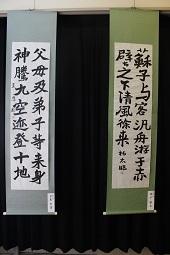 蘇子与客汎舟游于赤
壁之下清風徐来
父母及弟子等来身
神騰九空迹登十地